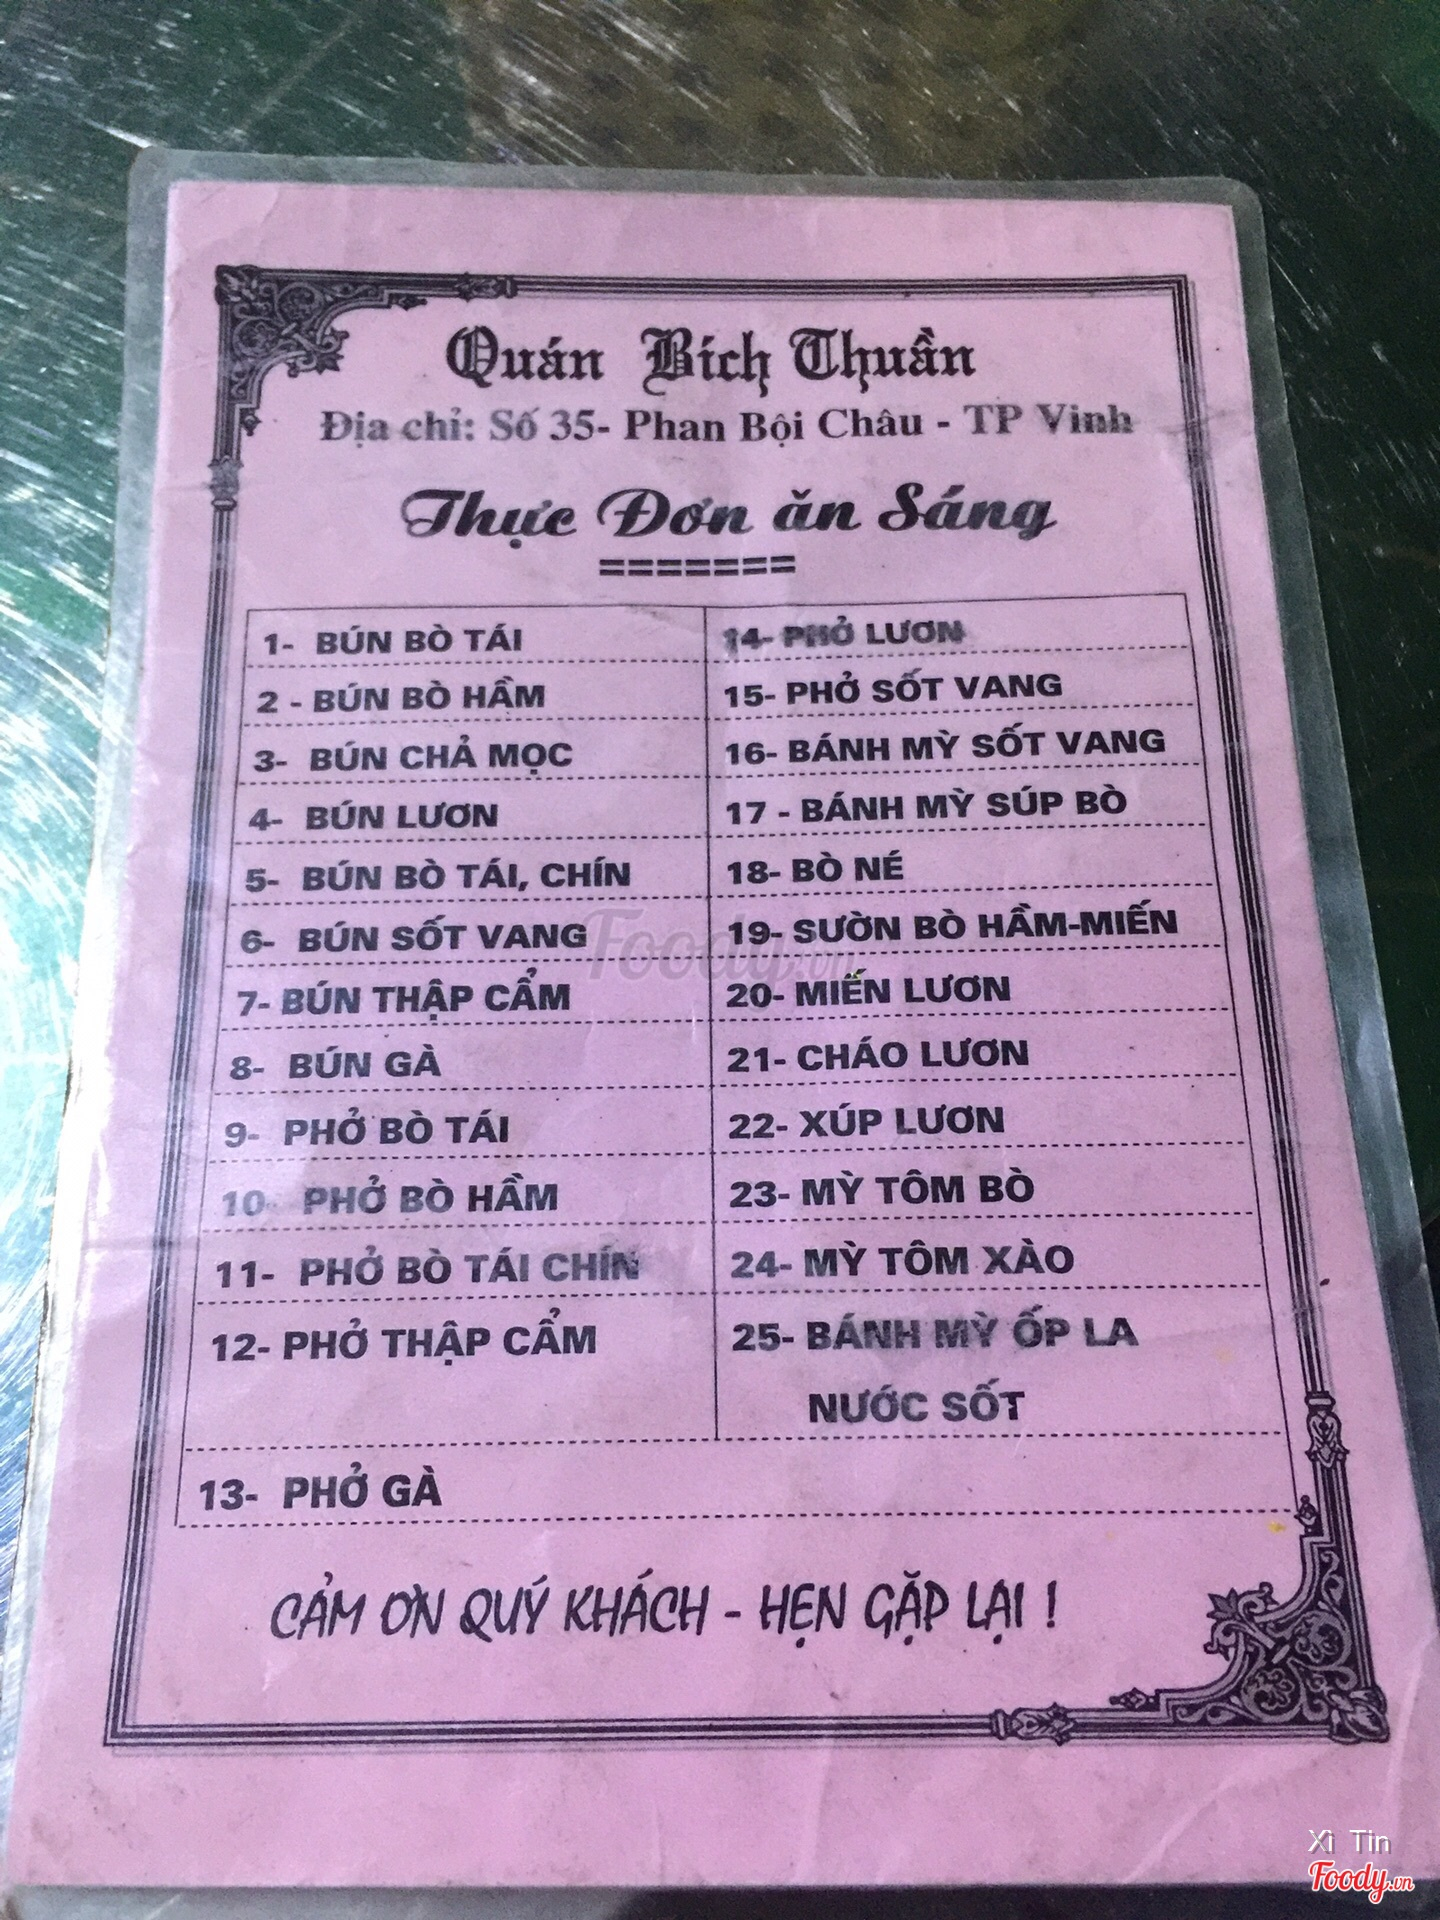 Quán Bích Thuần
Địa chỉ: Số 35- Phan Bội Châu - TP Vinh
Thực Đơn ăn Sáng
=======
1- BÚN BÒ TÁI
2 - BÚN BÒ HẦM
3- BÚN CHẢ MỌC
4- BÚN LƯƠN
5- BÚN BÒ TÁI, CHÍN
6- BÚN SỐT VANG
7- BÚN THẬP CẨM
8- BÚN GÀ
9- PHỞ BÒ TÁI
10- PHỞ BÒ HẦM
11- PHỞ BÒ TÁI CHÍN
12- PHỞ THẬP CẨM
13- PHỞ GÀ
14- PHỞ LƯƠN
15- PHỞ SỐT VANG
16- BÁNH MỲ SỐT VANG
17 - BÁNH MỲ SÚP BÒ
18- BÒ NÉ
19- SƯỜN BÒ HẦM-MIẾN
20- MIẾN LƯƠN
21- CHÁO LƯƠN
22- XÚP LƯƠN
23- MỲ TÔM BÒ
24- MỲ TÔM XÀO
25- BÁNH MỲ ỐP LA
NƯỚC SỐT
CẢM ƠN QUÝ KHÁCH - HẸN GẶP LẠI !
Foody.vn
Xì Tin
Foody.vn